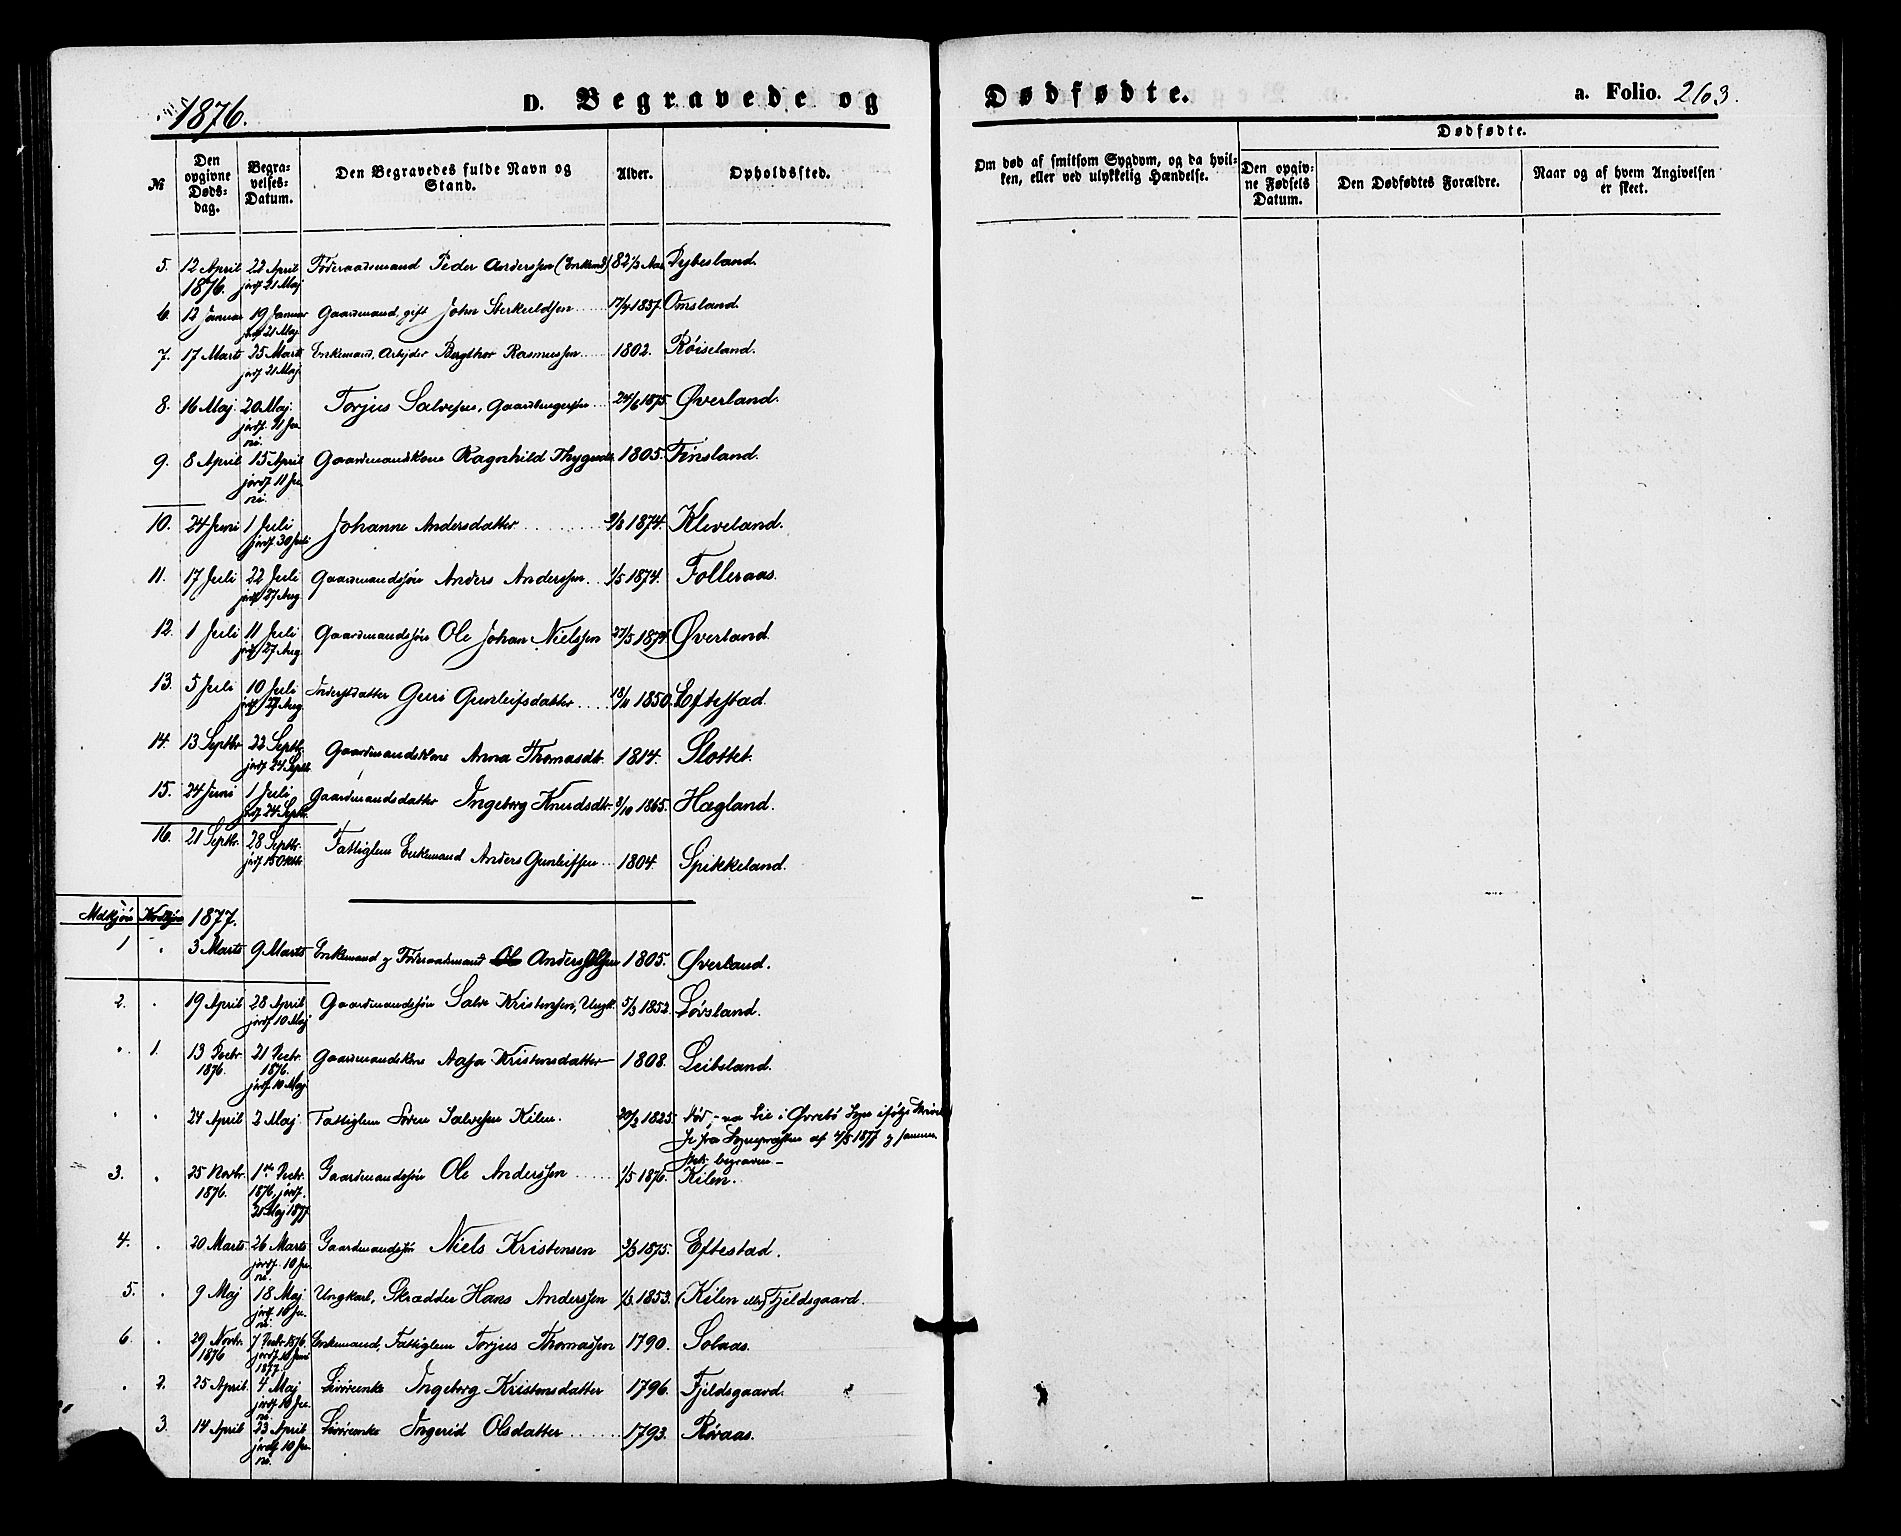 1876.
D. Begravede og
Dødfødte.
a. Folio. 263.
№
Den opgivne Døds-dag.
Begra-velses-Datum.
Den Begravedes fulde Navn og Stand.
Alder.
Opholdssted.
Om død af smitsom Sygdom, og da hvil-ken, eller ved ulykkelig Hændelse.
Dødfødte.
Den opgiv-ne Fødsels Datum.
Den Dødfødtes Forældre.
Naar og af hvem Angivelsen er skeet.
5. 12 April 1876. 22 April jordf. 21 Maj Føderaadsmand Peder Anderssen (Enkemd) 82 1/3 Aar. Dybesland.
6. 12 Januar 19 Januar jordf. 21 Maj Gaardmand, gift John Sterkeldsen 17/4 1837. Omsland.
7. 17 Marts 25 Marts jordf. 21 Maj Enkemand, Arbejder Bergthor Rasmussen 1802. Røiseland.
8. 16 Maj. 20 Maj. jordf. 11 Ju-ni. Torjus Salvesen, Gaardbrugersøn 24/6 1875. Øverland.
9. 8 April 15 April jordf. 11 Ju-ni. Gaardmandskone Ragnhild Thygesdr. 1805. Finsland.
10. 24 Juni 1 Juli jordf. 30 Juli Johanne Andersdatter 9/3 1874. Kleveland.
11. 17 Juli 22 Juli jordf. 27 Aug. Gaardmandssøn Anders Anderssen. 1/5 1874. Folleraas.
12. 1 Juli 11 Juli jordf. 27 Aug. Gaardmandssøn Ole Johan Nielssen 27/5 1874. Øverland.
13. 5 Juli 10 Juli jordf. 27 Aug. Inderstdatter Guri Gunleifsdatter 18/11 1850. Eftestad.
14. 13 Septbr 22 Septb. jordf. 24 Septb. Gaardmandskone Anna Thomasdt. 1814. Slottet.
15. 24 Juni 1 Juli jordf. 24 Septb. Gaardmandsdatter Ingeborg Knudsdtr. 3/10 1865. Hægland.
16. 21 Septbr. 28 Septbr. jordf. 15 Oktb. Fattiglem Enkemand Anders Gunleifsen 1804. Spikkeland.
Mdkjøn Kvdkjøn 1877.
1 . 3 Marts 9 Marts Enkemand og Føderaadsmand Anders Olsen 1805. Øverland.
2. . 19 April 28 April jordf. 10 Maj Gaardmandssøn Salve Kristenssen, Ungk. 5/3 1852. Løvsland.
. 1. 13 Decbr 1876. 21 Decbr. 1876. jordf. 10 Maj Gaardmandskone Aasa Kristensdatter 1808. Leibsland.
. . 24 April 2 Maj Fattiglem Søren Salvesen Kilen. 20/2 1825. død paa Lie i Øvrebø Sogn ifølge Skrivel-
se fra Sognepræsten af 4/5 1877 og samme-
steds begraven -
3. . 25 Novbr. 1876. 1ste Decbr. 1876, jordf. 21 Maj 1877 Gaardmandssøn Ole Anderssen 1/5 1876. Kilen.
4. . 20 Marts 26 Marts jordf. 10 Ju-ni. Gaardmandssøn Niels Kristensen 3/3 1875. Eftestad.
5. . 9 Maj 18 Maj jordf. 10 Ju-ni. Ungkarl, Skrædder Hans Anderssen 1/3 1853. (Kilen eller) Fjeldsgaard.
6. . 29 Novbr. 1876 7 Decbr. 1876. jordf. 10 Juni 1877. Enkemand, Fattiglem Torjus Thomassen 1790. Solaas.
. 2. 25 April. 4 Maj jordf. 10 Ju-ni. Ingeborg Kristensdatter 1796. Fjeldsgaard.
. 3. 14 April 23 April jordf. 10 Ju-ni. Ingerid Olsdatter 1793. Røraas.